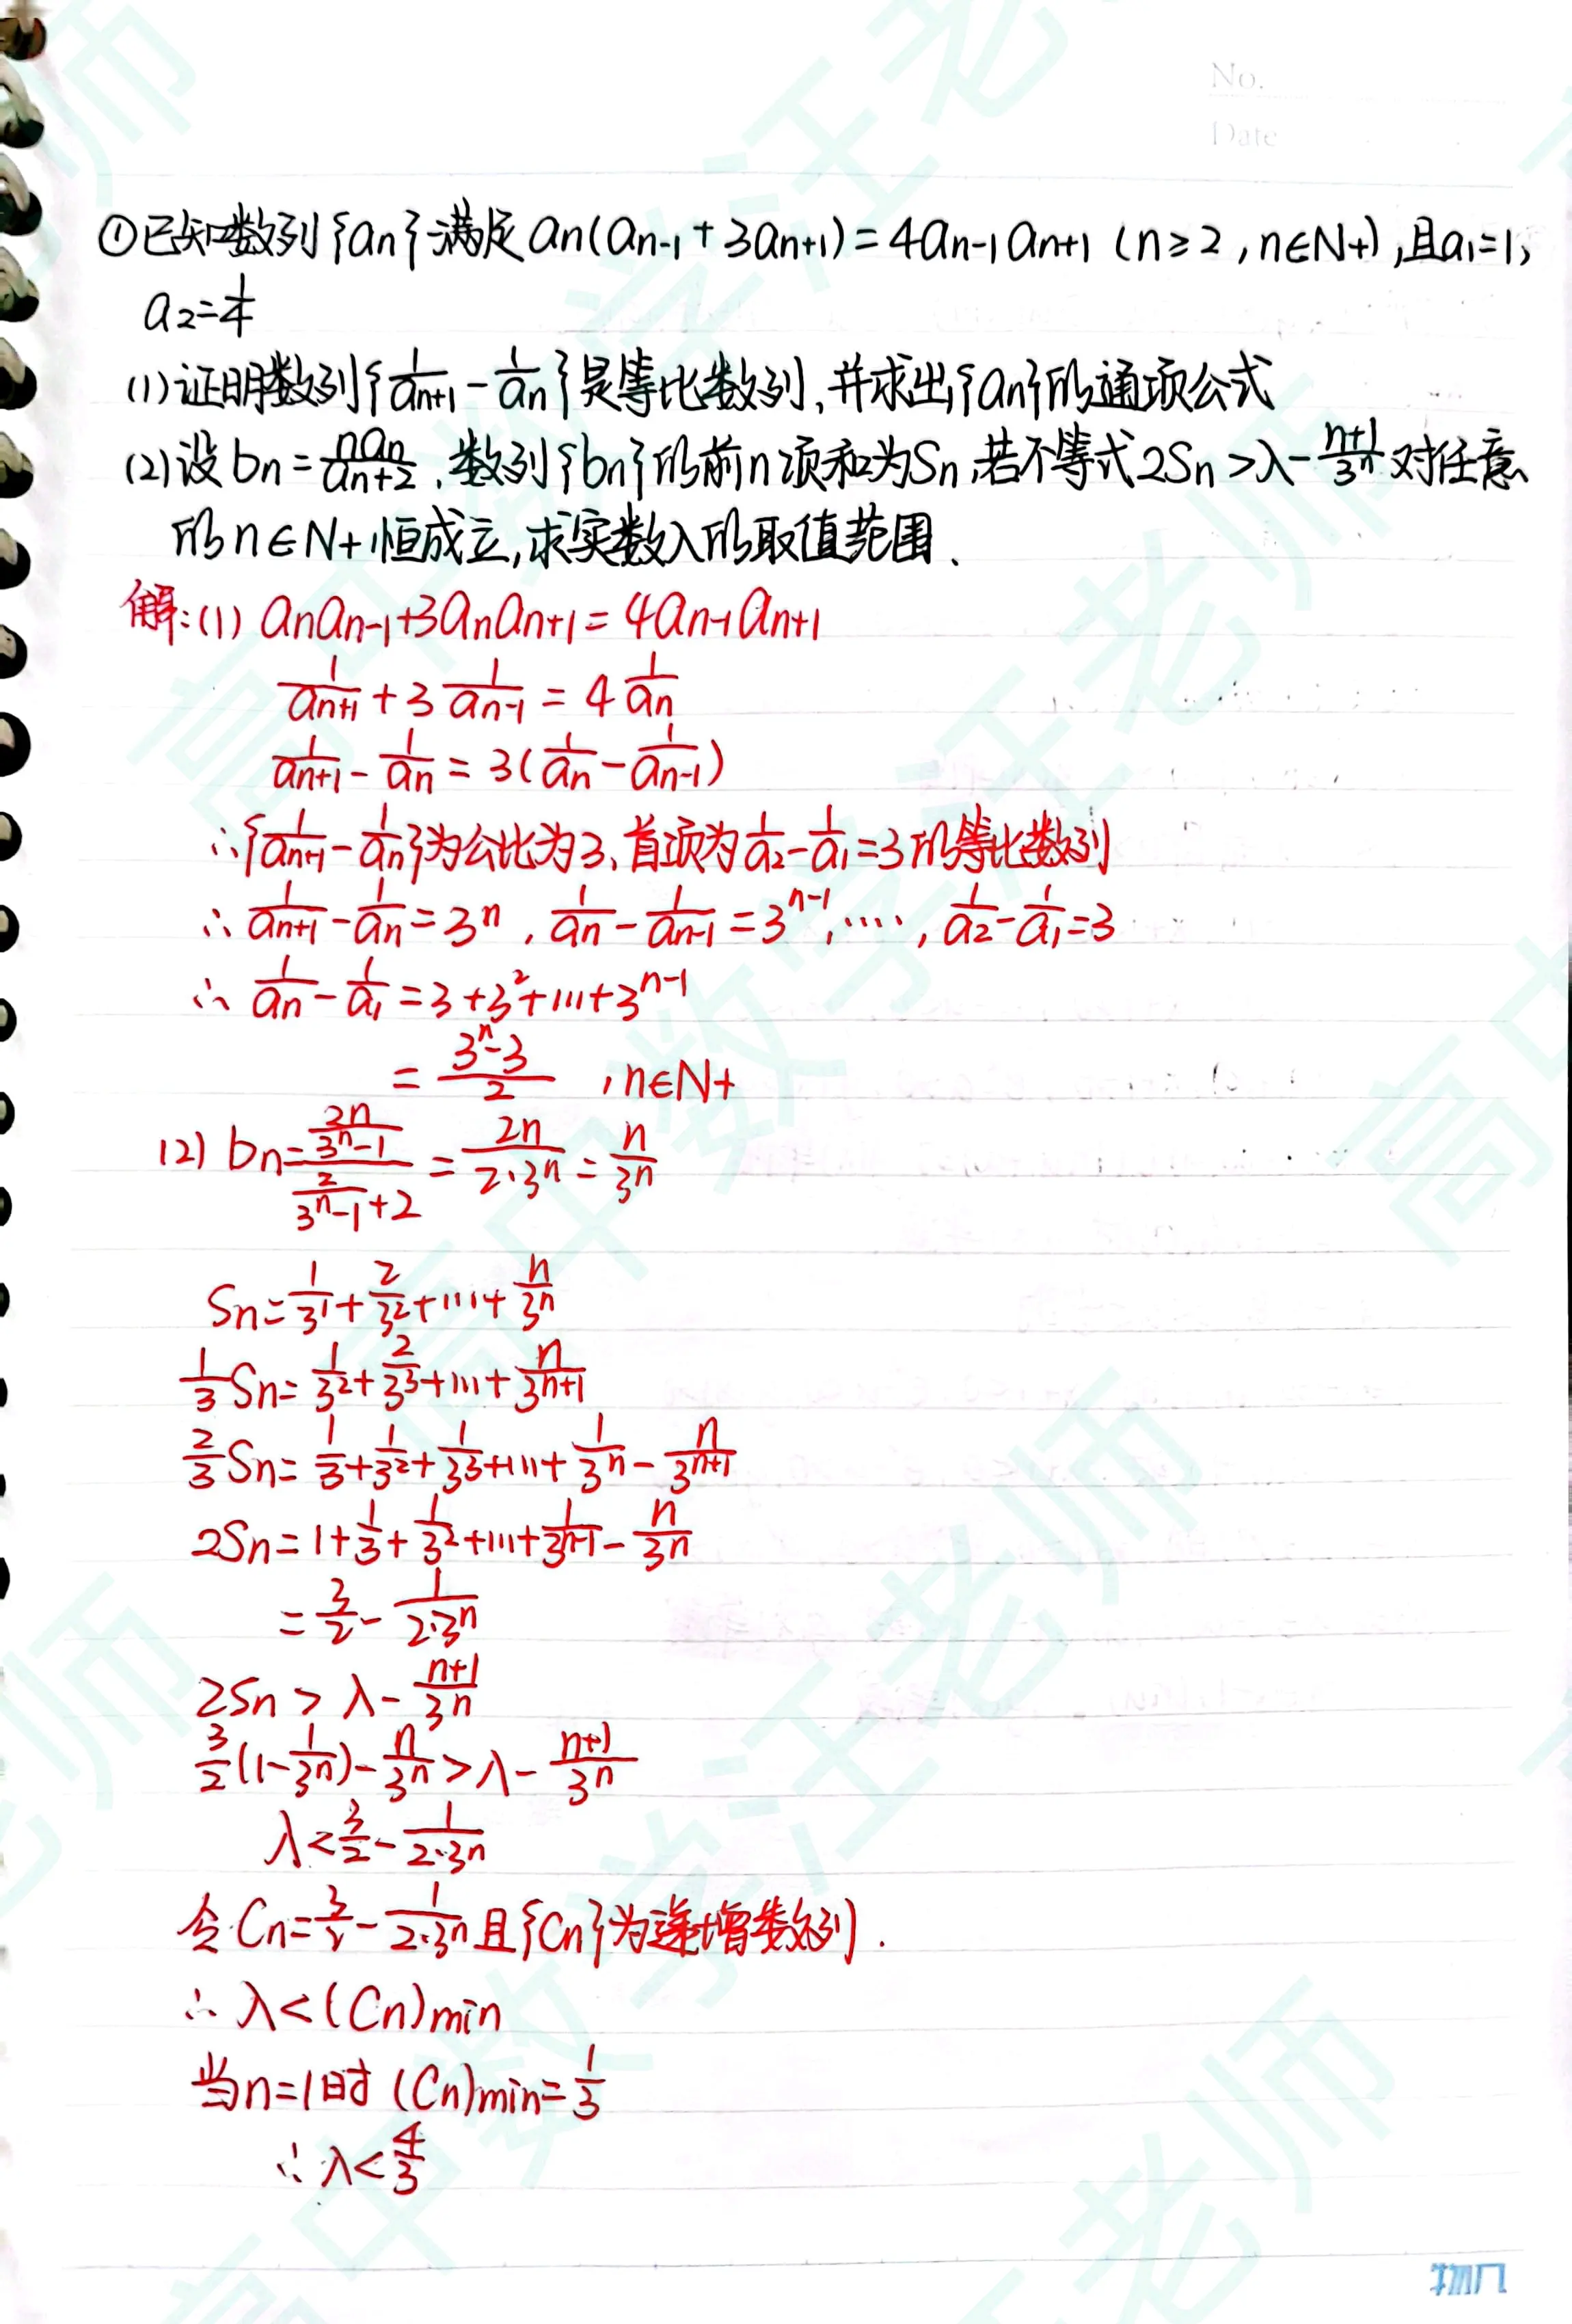 No.
Date
①已知数列{an}满足an(an-1+3an+1)=4an-1an+1 (n≥2,n∈N+),且a1=1,
a2=1/4
(1)证明数列{1/an+1 - 1/an}是等比数列,并求出{an}的通项公式
(2)设bn=nan/an+2,数列{bn}的前n项和为Sn,若不等式2Sn>λ-(n+1)/3^n对任意
的n∈N+恒成立,求实数λ的取值范围.
解:(1) anan-1+3anan+1=4an-1an+1
1/an+1 + 3 1/an-1 = 4 1/an
1/an+1 - 1/an = 3(1/an - 1/an-1)
∴{1/an+1 - 1/an}为公比为3、首项为1/a2 - 1/a1=3的等比数列
∴1/an+1 - 1/an=3^n, 1/an - 1/an-1=3^(n-1), ····, 1/a2 - 1/a1=3
∴ 1/an - 1/a1 = 3+3^2+···+3^(n-1)
= (3^n-3)/2 , n∈N+
(2) bn=(2n/(3^n-1))/(2/(3^n-1)+2) = 2n/(2·3^n) = n/3^n
Sn=1/3^1+2/3^2+···+n/3^n
1/3 Sn=1/3^2+2/3^3+···+n/3^(n+1)
2/3 Sn=1/3+1/3^2+1/3^3+···+1/3^n - n/3^(n+1)
2Sn=1+1/3+1/3^2+···+1/3^(n-1) - n/3^n
=3/2 - 1/(2·3^n)
2Sn > λ-(n+1)/3^n
3/2(1-1/3^n)-n/3^n>λ-(n+1)/3^n
λ<3/2 - 1/(2·3^n)
令Cn=3/2 - 1/(2·3^n)且{Cn}为递增数列.
∴ λ<(Cn)min
当n=1时 (Cn)min=1/3
∴ λ<4/3
高中数学汪老师